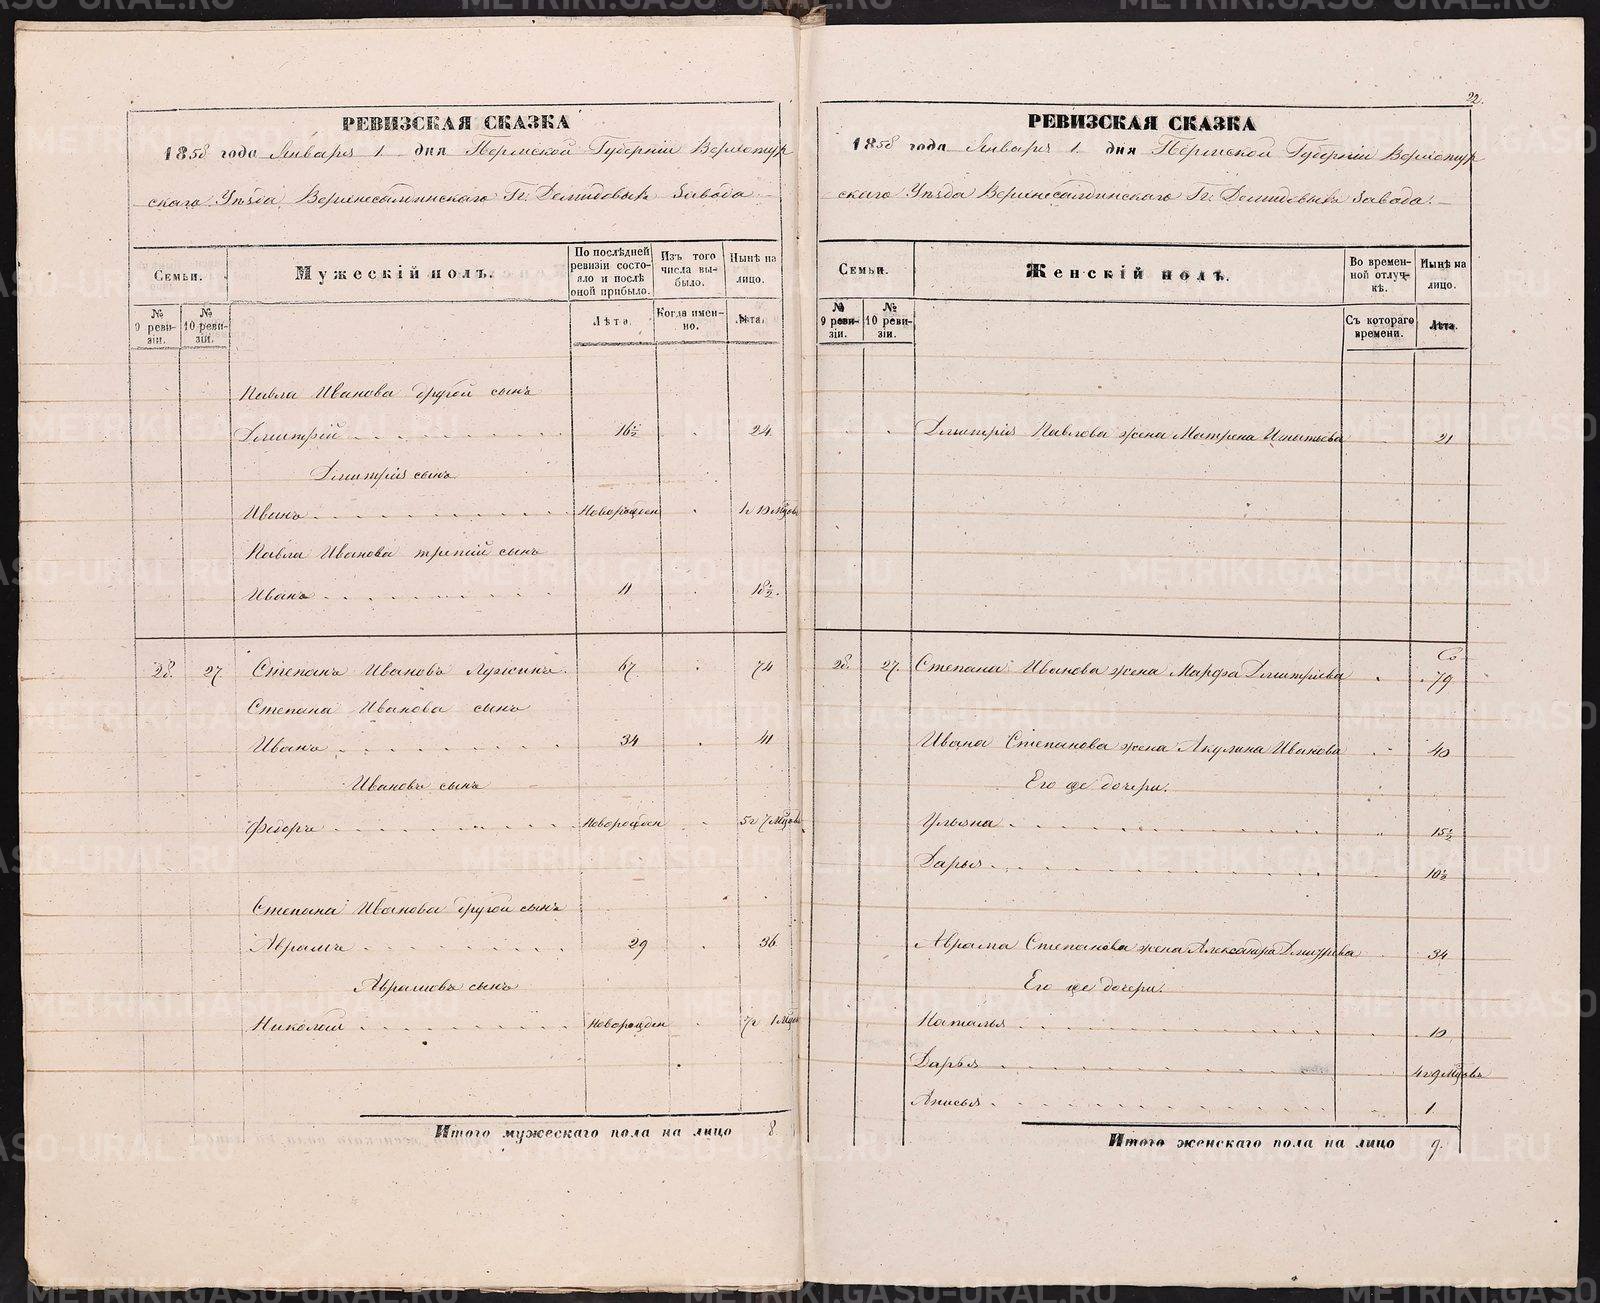 22.
РЕВИЗСКАЯ СКАЗКА
1858 года Января 1 дня Пермской Губерніи Верхотур
скаго Уѣзда Верхнесалдинскаго Гг. Демидовыхъ Завода
Семьи.
Мужескій полъ.
По послѣдней ревизіи состояло и послѣ оной прибыло.
Изъ того числа выбыло.
Нынѣ на лицо.
№ 9 ревизіи.
№ 10 ревизіи.
Лѣта.
Когда именно.
Лѣта.
Павла Иванова другой сынъ
Дмитрій 16½ 24
Дмитрія сынъ
Иванъ новорожден 1г 10 мцовъ
Павла Иванова третій сынъ
Иванъ 11 18½.
28. 27. Степанъ Ивановъ Лужинъ. 67 74
Степана Иванова сынъ
Иванъ 34 41
Ивановъ сынъ
Федоръ новорожден 5г 7 мцовъ
Степана Иванова другой сынъ
Аврамъ 29 36
Аврамовъ сынъ
Николай новорожден 7г 1 мцъ
Итого мужескаго пола на лицо 8
РЕВИЗСКАЯ СКАЗКА
1858 года Января 1 дня Пермской Губерніи Верхотур
скаго Уѣзда Верхнесалдинскаго Гг. Демидовыхъ Завода.
Семьи.
Женскій полъ.
Во временной отлучкѣ.
Нынѣ на лицо.
№ 9 ревизіи.
№ 10 ревизіи.
Съ котораго времени.
Лѣта.
Дмитрія Павлова жена Матрена Игнатьева 21
28. 27. Степана Иванова жена Марфа Дмитріева 79
Ивана Степанова жена Акулина Иванова 40
Его же дочери.
Ульяна 15½
Дарья 10½
Аврама Степанова жена Александра Дмитріева 34
Его же дочери.
Наталья 10
Дарья 4г 9 мцовъ
Анисья 1
Итого женскаго пола на лицо 9.
METRIKI.GASO-URAL.RU